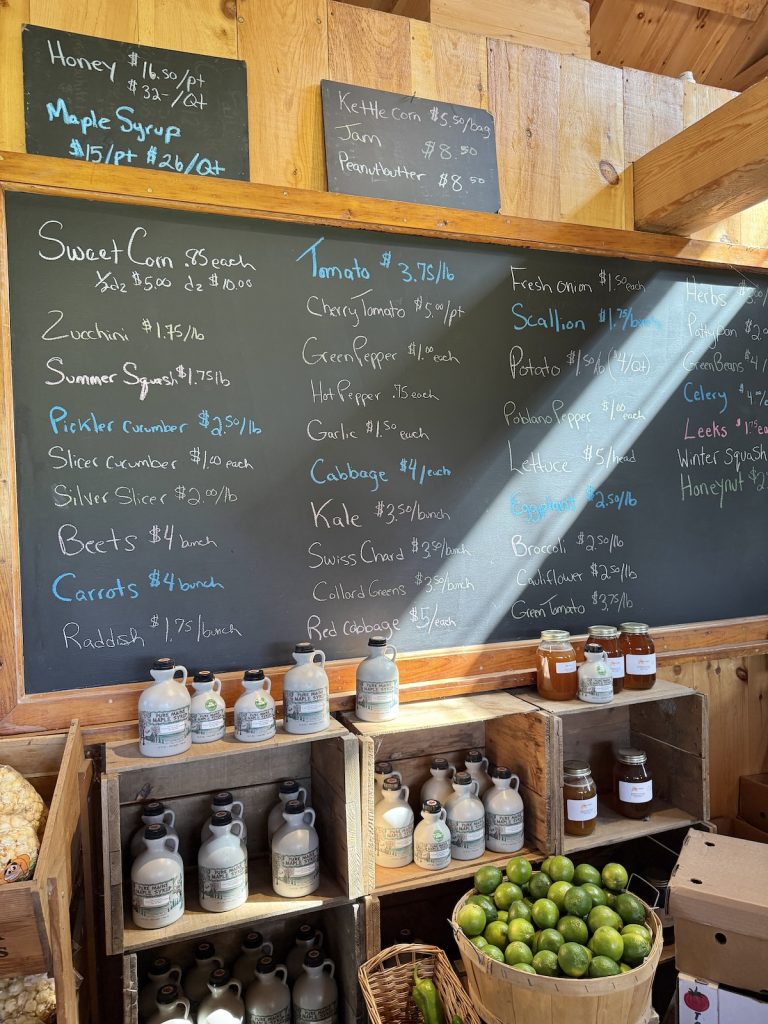 Honey $16.50/pt
$32-/Qt
Maple Syrup
$15/pt $26/Qt
Kettle Corn $5.50/bag
Jam $8.50
Peanutbutter $8.50
Sweet Corn .85 each
½dz $5.00 dz $10.00
Zucchini $1.75/lb
Summer Squash $1.75lb
Pickler cucumber $2.50/lb
Slicer cucumber $1.00 each
Silver Slicer $2.00/lb
Beets $4 bunch
Carrots $4 bunch
Raddish $1.75/bunch
Tomato $3.75/lb
Cherry Tomato $5.00/pt
Green Pepper $1.00 each
Hot Pepper .75 each
Garlic $1.50 each
Cabbage $4/each
Kale $3.50/bunch
Swiss Chard $3.50/bunch
Collard Greens $3.50/bunch
Red Cabbage $5/each
Fresh onion $1.50 each
Scallion $1.75/bunch
Potato $1.50/lb ($4/Qt)
Poblano Pepper $1.00 each
Lettuce $5/head
Eggplant $2.50/lb
Broccoli $2.50/lb
Cauliflower $2.50/lb
Green Tomato $3.75/lb
Herbs
Pattypan $2
Green Beans $4
Celery $4
Leeks $1.75 ea
Winter Squash
Honeynut $2
PURE MAINE
MAPLE SYRUP